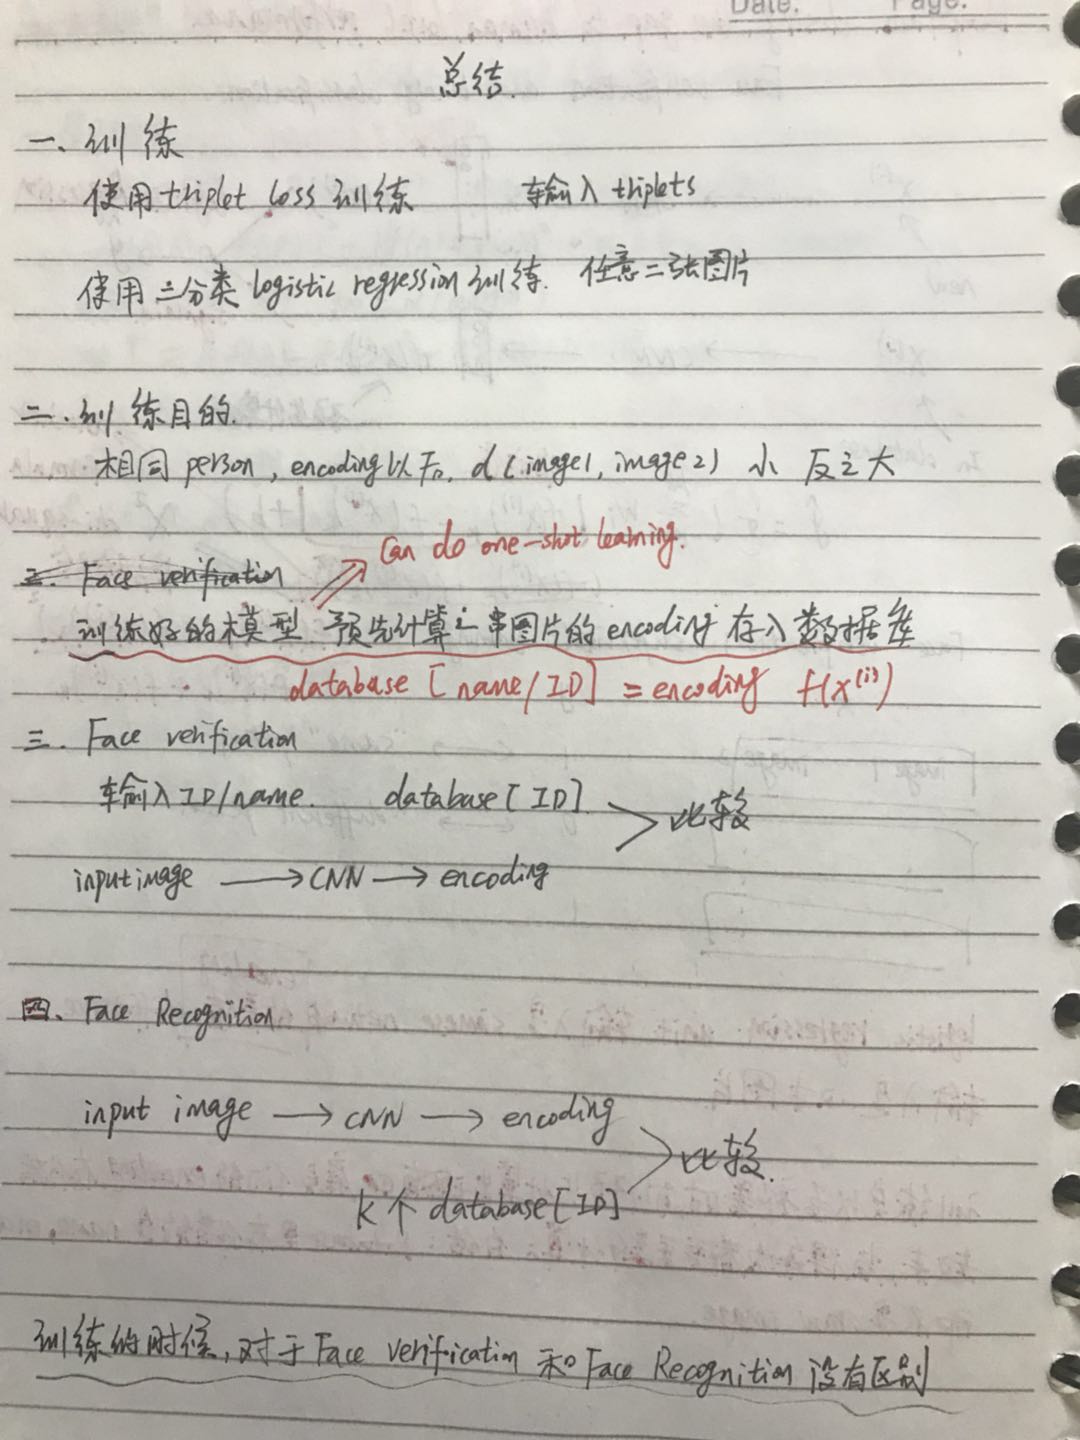 Date: Page:
总结.
一、训练
使用triplet loss 训练 输入 triplets
使用二分类 logistic regression 训练. 任意二张图片
二. 训练目的.
相同 person, encoding以后. d(image1, image2) 小 反之大
Can do one-shot learning.
三. Face verification
训练好的模型 预先计算 图片的 encoding 存入数据库
database [name/ID] = encoding f(x^(i))
三. Face verification
输入ID/name. database[ID]
比较
input image → CNN → encoding
四、Face Recognition
input image → CNN → encoding
比较.
K个 database[ID]
训练的时候, 对于 Face verification 和 Face Recognition 没有区别